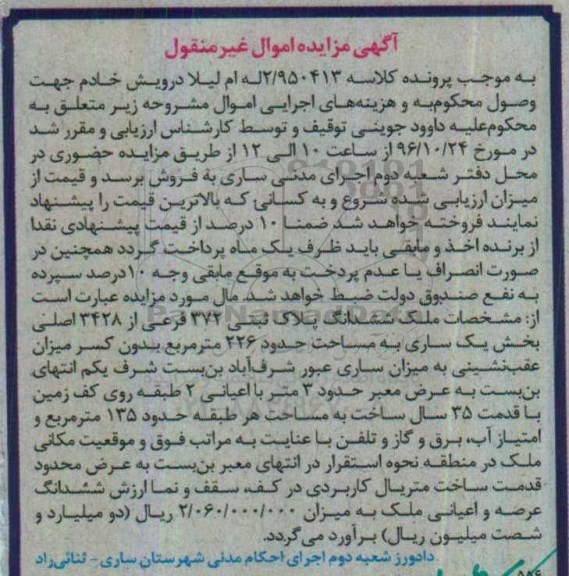 آگهی مزایده اموال غیرمنقول
به موجب پرونده کلاسه ۲/۹۵۰۴۱۳له ام لیلا درویش خادم جهت
وصول محکوم‌به و هزینه‌های اجرایی اموال مشروحه زیر متعلق به
محکوم‌علیه داوود جوینی توقیف و توسط کارشناس ارزیابی و مقرر شد
در مورخ ۹۶/۱۰/۲۴ از ساعت ۱۰ الی ۱۲ از طریق مزایده حضوری در
محل دفتر شعبه دوم اجرای مدنی ساری به فروش برسد و قیمت از
میزان ارزیابی شده شروع و به کسانی که بالاترین قیمت را پیشنهاد
نمایند فروخته خواهد شد ضمنا ۱۰ درصد از قیمت پیشنهادی نقدا
از برنده اخذ و مابقی باید ظرف یک ماه پرداخت گردد همچنین در
صورت انصراف یا عدم پردخت به موقع مابقی وجه ۱۰درصد سپرده
به نفع صندوق دولت ضبط خواهد شد. مال مورد مزایده عبارت است
از: مشخصات ملک ششدانگ پلاک ثبتی ۳۷۲ فرعی از ۳۴۲۸ اصلی
بخش یک ساری به مساحت حدود ۲۲۶ مترمربع بدون کسر میزان
عقب‌نشینی به میزان ساری عبور شرف‌آباد بن‌بست شرف یکم انتهای
بن‌بست به عرض معبر حدود ۳ متر با اعیانی ۲ طبقه روی کف زمین
با قدمت ۳۵ سال ساخت به مساحت هر طبقه حدود ۱۳۵ مترمربع و
امتیاز آب، برق و گاز و تلفن با عنایت به مراتب فوق و موقعیت مکانی
ملک در منطقه نحوه استقرار در انتهای معبر بن‌بست به عرض محدود
قدمت ساخت متریال کاربردی در کف، سقف و نما ارزش ششدانگ
عرصه و اعیانی ملک به میزان ۲/۰۶۰/۰۰۰/۰۰۰ ریال (دو میلیارد و
شصت میلیون ریال) برآورد می‌گردد.
دادورز شعبه دوم اجرای احکام مدنی شهرستان ساری - ثنائی‌راد